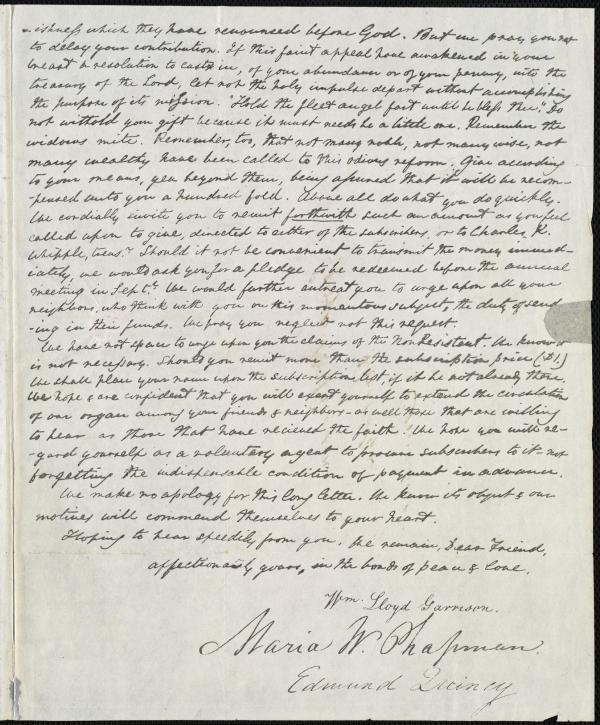 -ishness which they have renounced before God. But we pray you not
to delay your contribution. If this faint appeal have awakened in your
breast a resolution to cast in, of your abundance or of your penury, into the
treasury of the Lord, let not the holy impulse depart without accomplishing
the purpose of its mission. "Hold the fleet angel fast until he bless thee." Do
not withold you gift because it must needs be a little one. Remember the
widows mite. Remember, too, that not many noble, not many wise, not
many wealthy have been called to this odious reform. Give according
to your means, yea beyond them, being assured that it will be recom-
-pensed unto you a hundred fold. Above all do what you do quickly.
We cordially invite you to remit forthwith such an amount as you feel
called upon to give, directed to either of the subscribers, or to Charles K.
Whipple, treas.r Should it not be convenient to transmit the money immed-
-iately, we would ask you for a pledge to be redeemed before the annual
meeting in Sept.r We would further entreat you to urge upon all your
neighbors, who think with you on this momentous subject, the duty of send
-ing in their funds. We pray you neglect not this request.
We have not space to urge upon you the claims of the Non Resistant. We know it
is not necessary. Should you remit more than the subscription price ($1.)
We shall place your name upon the subscription list, if it be not already there.
We hope & are confident that you will exert yourself to extend the circulation
of our organ among your friends & neighbors - as well those that are willing
to hear as those that have recieved the faith. We hope you will re-
-gard yourself as a voluntary agent to procure subscribers to it - not
forgetting the indispensable condition of payment in advance.
We make no apology for this long letter. We know its object & our
motives will commend themselves to your heart.
Hoping to hear speedily from you, We remain, Dear Friend,
affectionately yours, in the bonds of peace & love.
Wm. Lloyd Garrison.
Maria W. Chapman.
Edmund Quincy